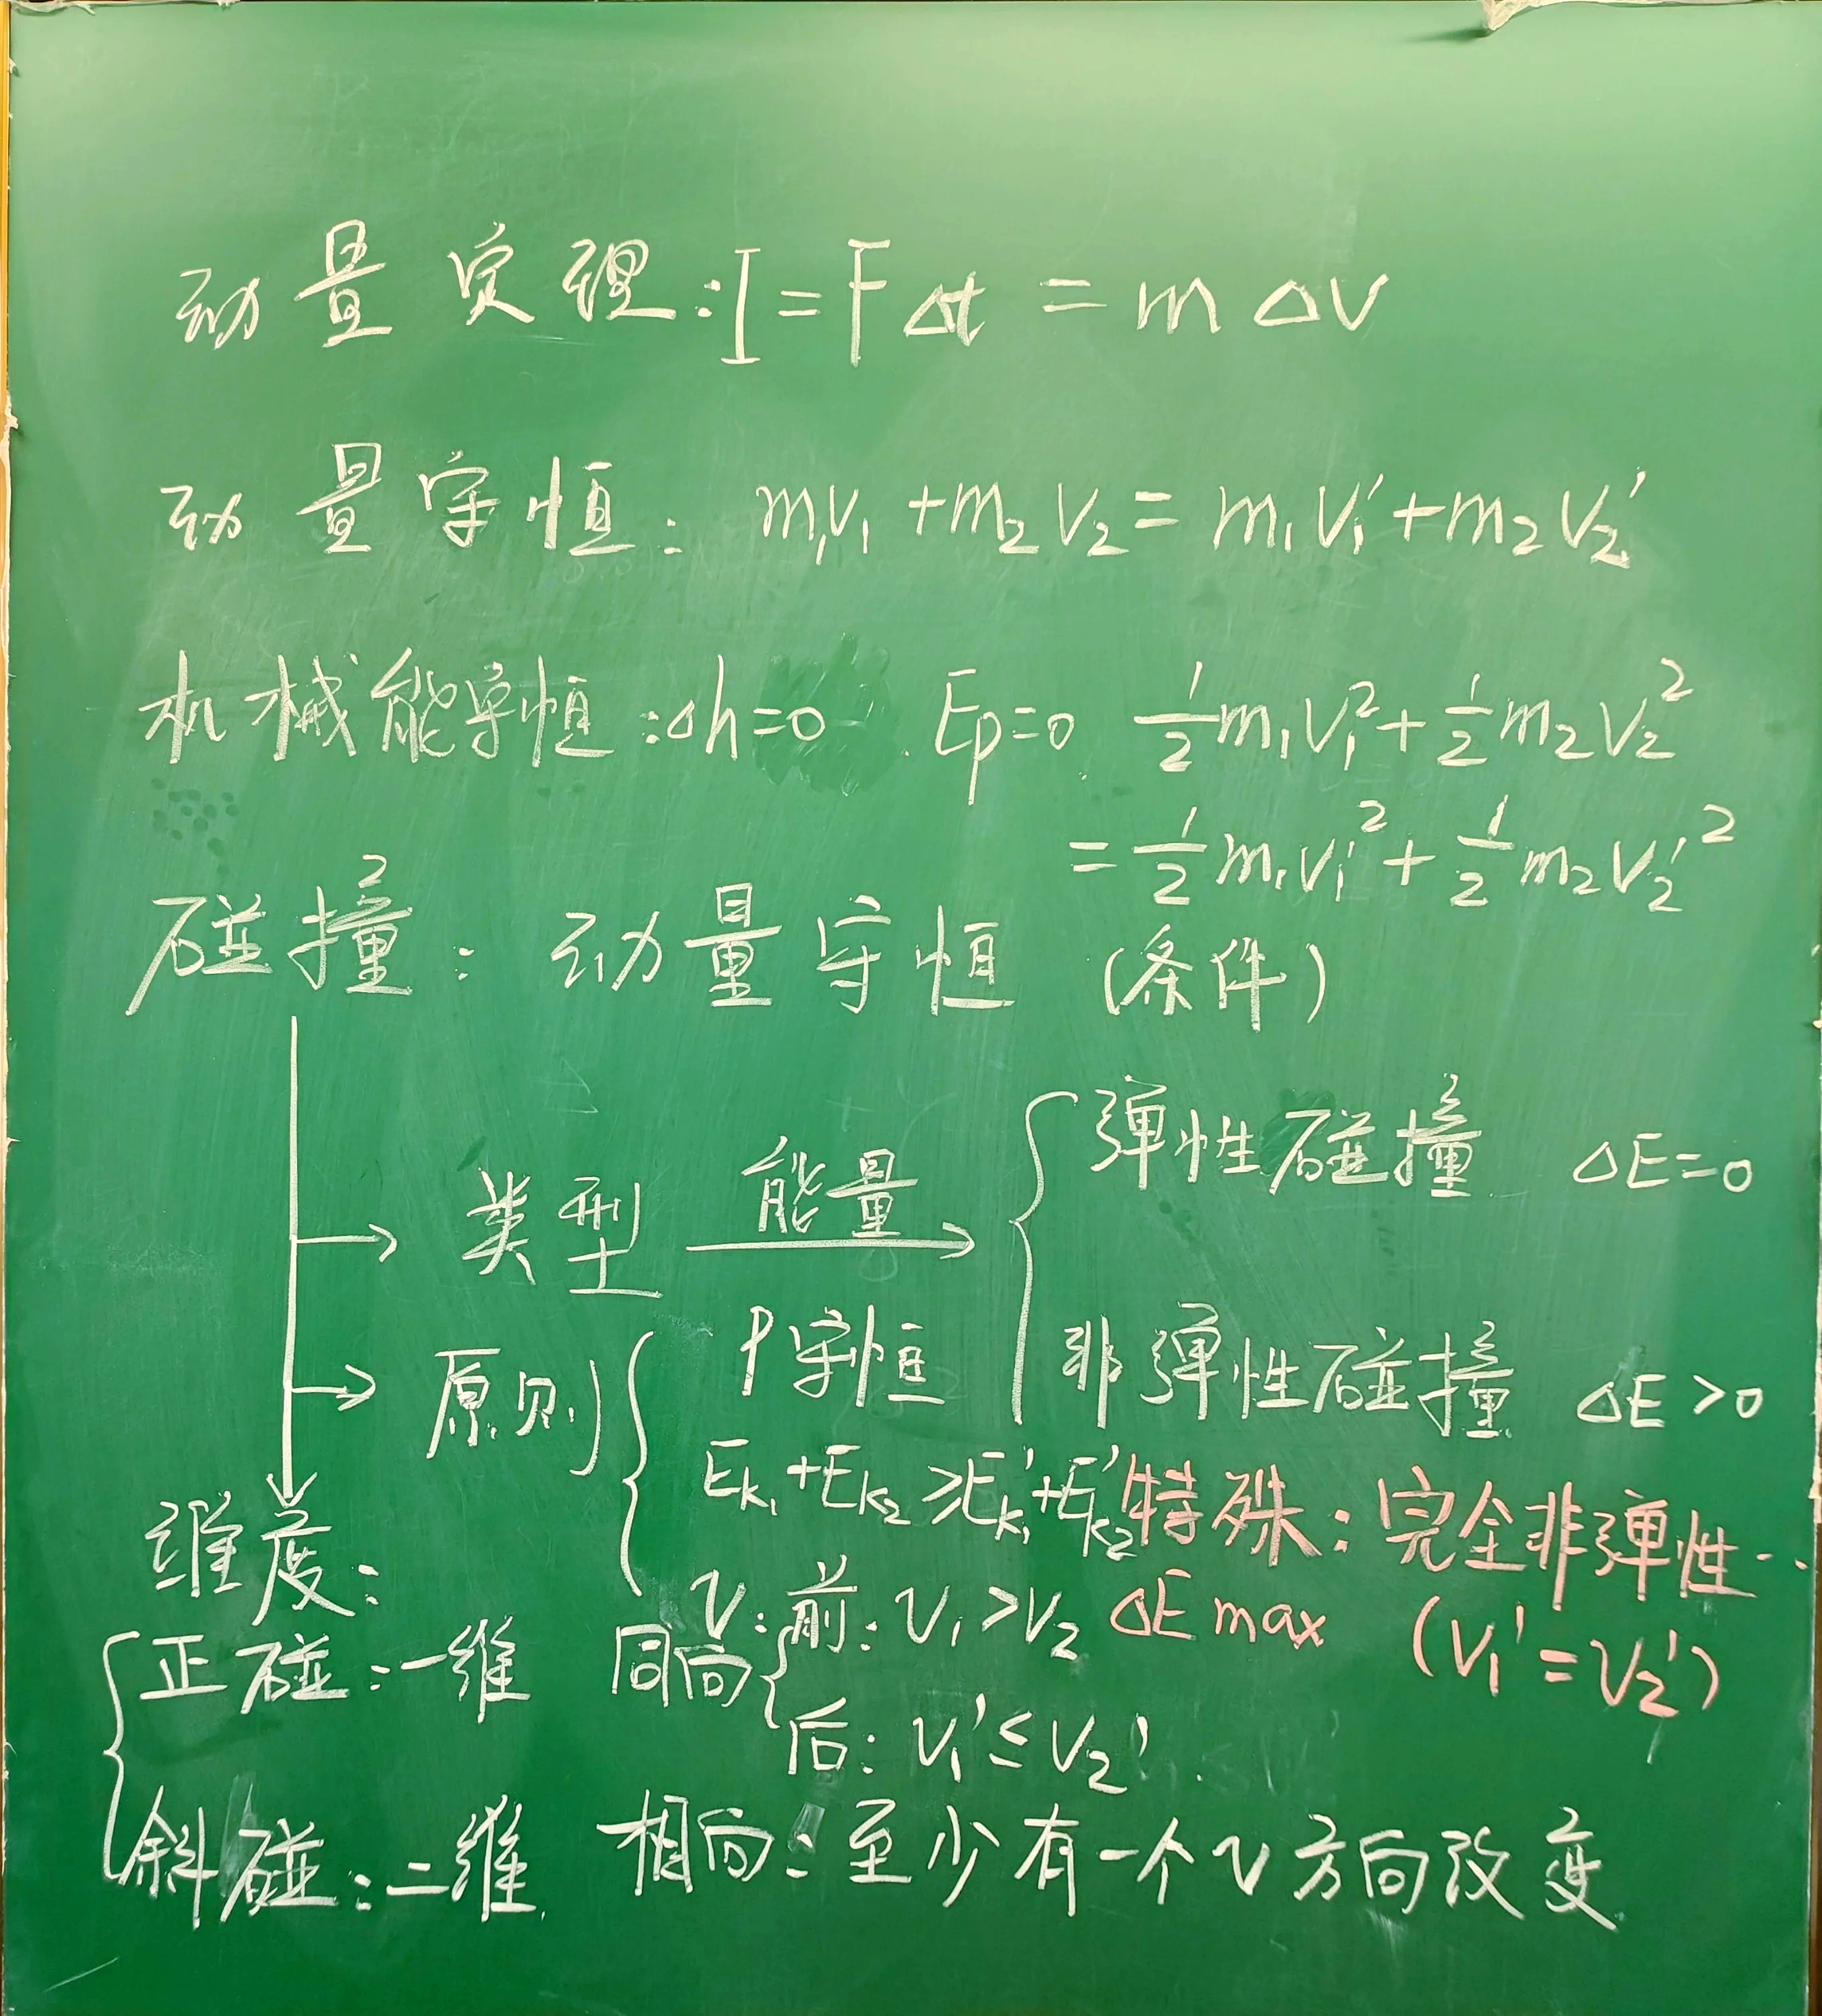 动量定理:I=FΔt=mΔv
动量守恒:m₁v₁+m₂v₂=m₁v₁'+m₂v₂'
机械能守恒:Δh=0 Ep=0 ½m₁v₁²+½m₂v₂²
=½m₁v₁'²+½m₂v₂'²
碰撞:动量守恒 (条件)
类型 能量 → { 弹性碰撞 ΔE=0
非弹性碰撞 ΔE>0
特殊:完全非弹性…
ΔEmax (v₁'=v₂')
原则 { P守恒
Ek₁+Ek₂≥Ek₁'+Ek₂'
v:前:v₁>v₂
同向
后:v₁'≤v₂'
相向:至少有一个v方向改变
维度:
正碰:一维
斜碰:二维